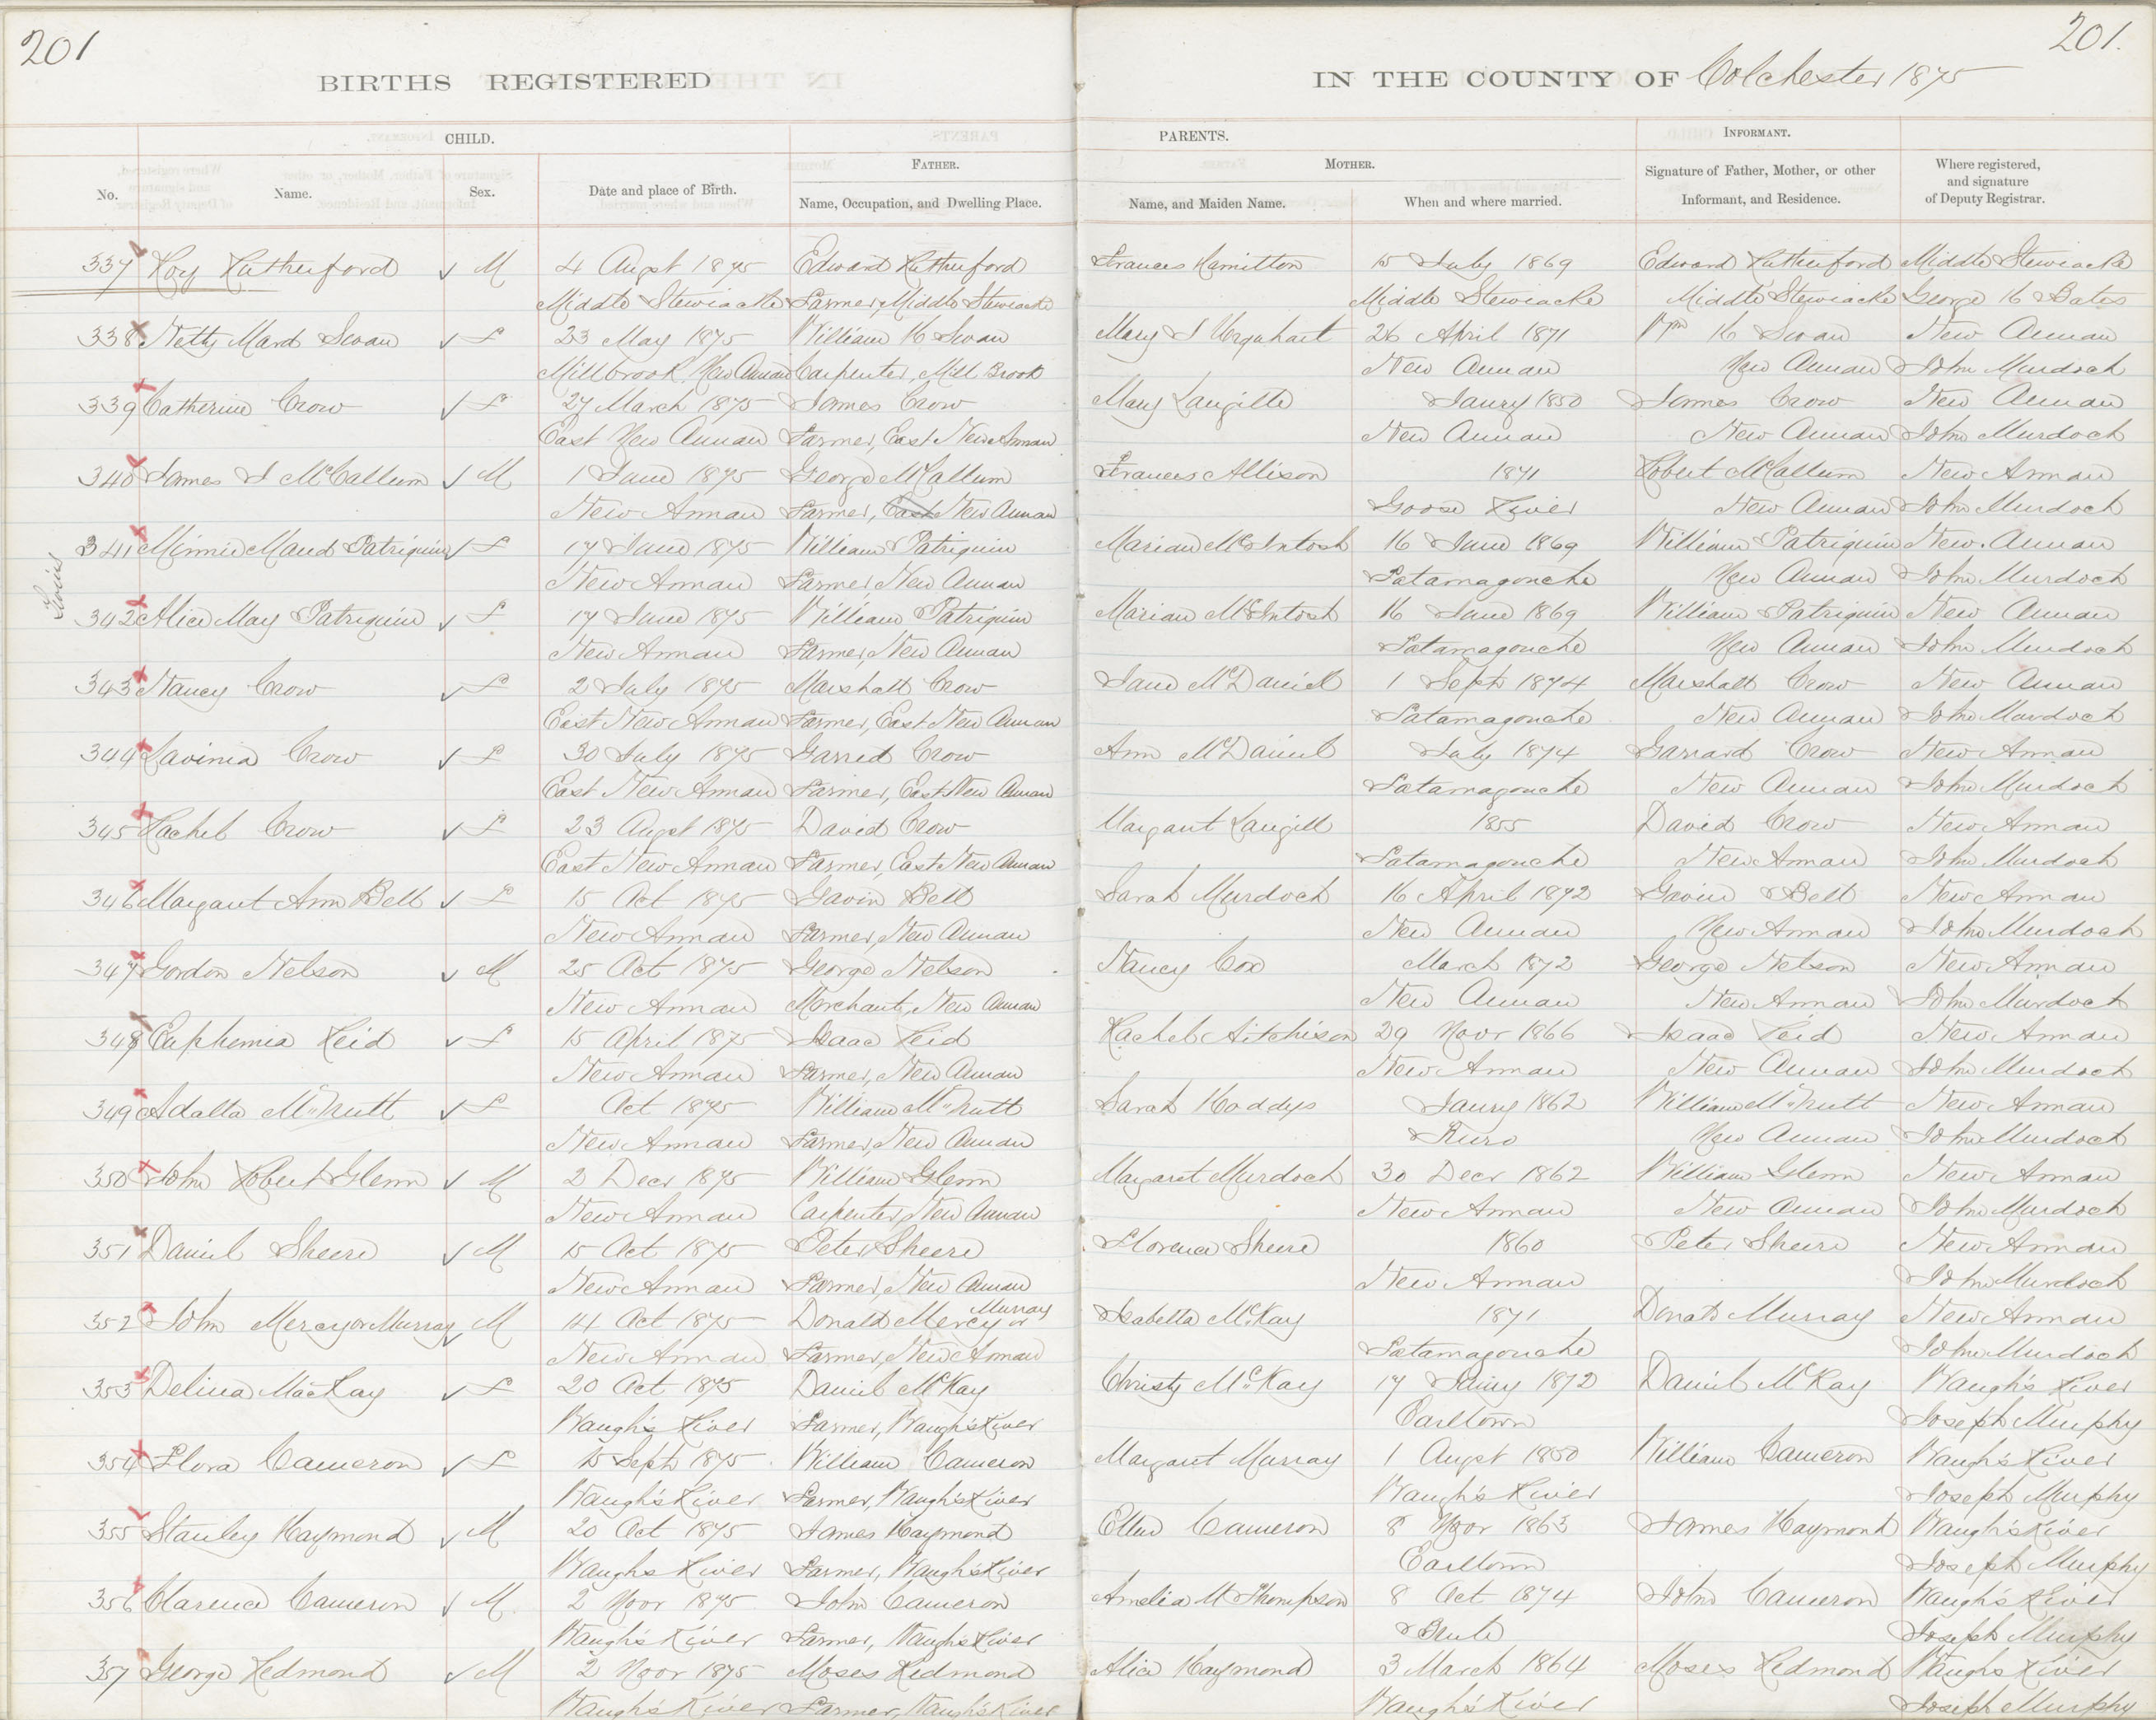 201
201.
BIRTHS REGISTERED IN THE COUNTY OF Colchester 1875
CHILD. PARENTS. INFORMANT.
FATHER. MOTHER.
No. Name. Sex. Date and place of Birth. Name, Occupation, and Dwelling Place. Name, and Maiden Name. When and where married. Signature of Father, Mother, or other Informant, and Residence. Where registered, and signature of Deputy Registrar.
337 Roy Rutherford M 4 Augst 1875 Edward Rutherford Frances Hamilton 15 July 1869 Edward Rutherford Middle Stewiacke
Middle Stewiacke Farmer, Middle Stewiacke Middle Stewiacke Middle Stewiacke George H Bates
338 Netty Mard Swan F 23 May 1875 William H Swan Mary J Urquhart 26 April 1871 Wm H Swan New Annan
Millbrook, New Annan Carpenter, Mill Brook New Annan New Annan John Murdoch
339 Catherine Crow F 27 March 1875 James Crow Mary Langille Jany 1850 James Crow New Annan
East New Annan Farmer, East New Annan New Annan New Annan John Murdoch
340 James J McCallum M 1 June 1875 George McCallum Frances Allison 1871 Robert McCallum New Annan
New Annan Farmer, East New Annan Goose River New Annan John Murdoch
Twins
341 Minnie Maud Patriquin F 17 June 1875 William Patriquin Marian McIntosh 16 June 1869 William Patriquin New Annan
New Annan Farmer, New Annan Tatamagouche New Annan John Murdoch
342 Alice May Patriquin F 17 June 1875 William Patriquin Marian McIntosh 16 June 1869 William Patriquin New Annan
New Annan Farmer, New Annan Tatamagouche New Annan John Murdoch
343 Nancy Crow F 2 July 1875 Marshall Crow Jane McDaniel 1 Sept 1874 Marshall Crow New Annan
East New Annan Farmer, East New Annan Tatamagouche New Annan John Murdoch
344 Lavinia Crow F 30 July 1875 Garred Crow Ann McDaniel July 1874 Garrard Crow New Annan
East New Annan Farmer, East New Annan Tatamagouche New Annan John Murdoch
345 Rachel Crow F 23 Augst 1875 David Crow Margaret Langill 1855 David Crow New Annan
East New Annan Farmer, East New Annan Tatamagouche New Annan John Murdoch
346 Margaret Ann Bell F 15 Oct 1875 Gavin Bell Sarah Murdoch 16 April 1872 Gavin Bell New Annan
New Annan Farmer, New Annan New Annan New Annan John Murdoch
347 Gordon Nelson M 25 Oct 1875 George Nelson Nancy Cox March 1872 George Nelson New Annan
New Annan Merchant, New Annan New Annan New Annan John Murdoch
348 Euphemia Reid F 15 April 1875 Isaac Reid Rachel Aitchison 29 Novr 1866 Isaac Reid New Annan
New Annan Farmer, New Annan New Annan New Annan John Murdoch
349 Adalta McNutt F Oct 1875 William McNutt Sarah Hoddys Jany 1862 William McNutt New Annan
New Annan Farmer, New Annan Truro New Annan John Murdoch
350 John Robert Glenn M 2 Decr 1875 William Glenn Margaret Murdoch 30 Decr 1862 William Glenn New Annan
New Annan Carpenter, New Annan New Annan New Annan John Murdoch
351 Daniel Sheere M 15 Oct 1875 Peter Sheere Florence Sheere 1860 Peter Sheere New Annan
New Annan Farmer, New Annan New Annan John Murdoch
352 John Mercy or Murray M 14 Oct 1875 Donald Mercy or Murray Isabella McKay 1871 Donald Murray New Annan
New Annan Farmer, New Annan Tatamagouche John Murdoch
353 Delina MacKay F 20 Oct 1875 Daniel McKay Christy McKay 17 Jany 1872 Daniel McKay Waugh's River
Waugh's River Farmer, Waugh's River Earltown Joseph Murphy
354 Flora Cameron F 15 Sept 1875 William Cameron Margaret Murray 1 Augst 1850 William Cameron Waugh's River
Waugh's River Farmer, Waugh's River Waugh's River Joseph Murphy
355 Stanley Haymond M 20 Oct 1875 James Haymond Ellen Cameron 8 Novr 1863 James Haymond Waugh's River
Waughs River Farmer, Waugh's River Earltown Joseph Murphy
356 Clarence Cameron M 2 Novr 1875 John Cameron Amelia M Thompson 8 Oct 1874 John Cameron Waugh's River
Waugh's River Farmer, Waugh's River Joseph Murphy
357 George Redmond M 2 Novr 1875 Moses Redmond Alice Haymond 3 March 1864 Moses Redmond Waughs River
Waugh's River Farmer, Waugh's River Waugh's River Joseph Murphy